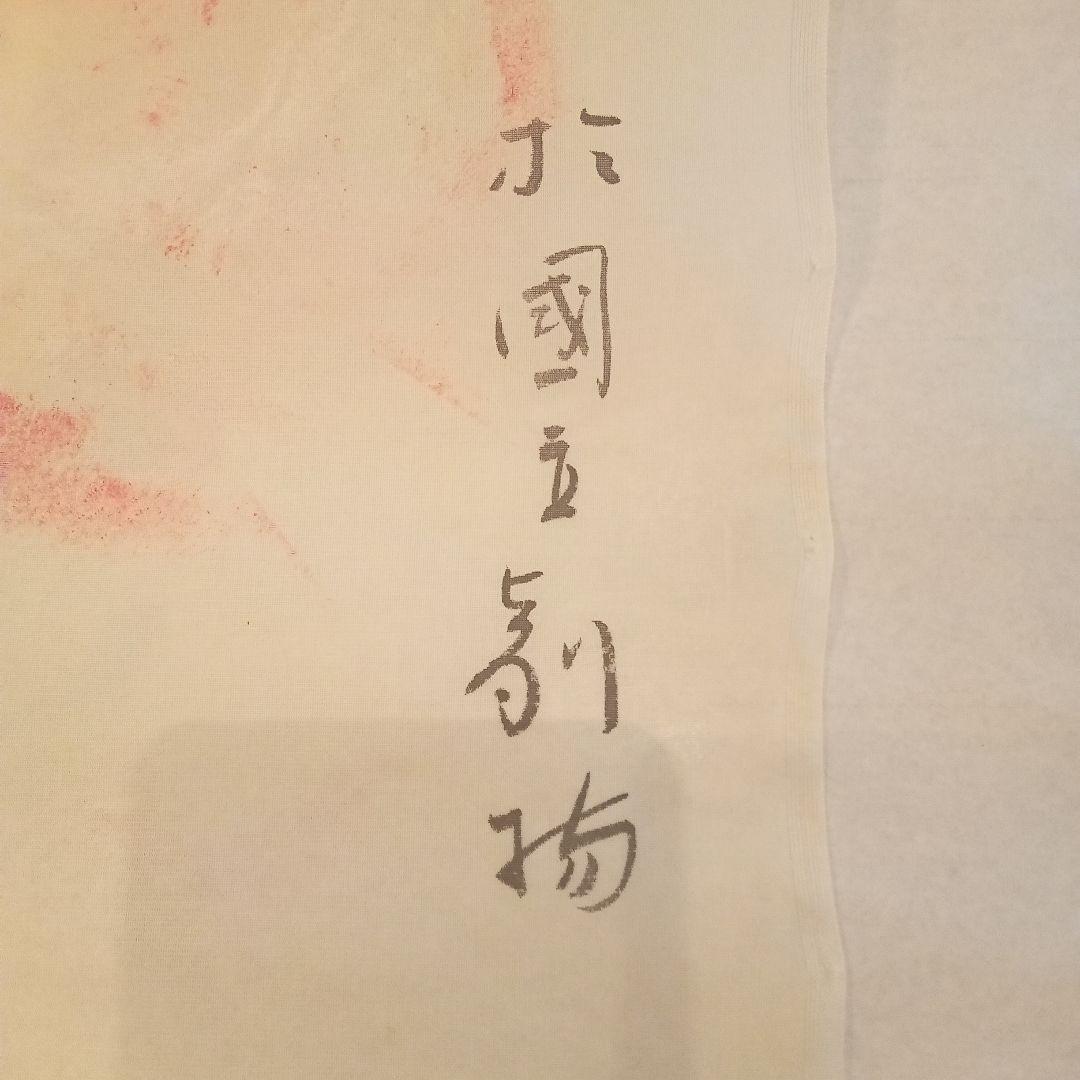 於國立劇場